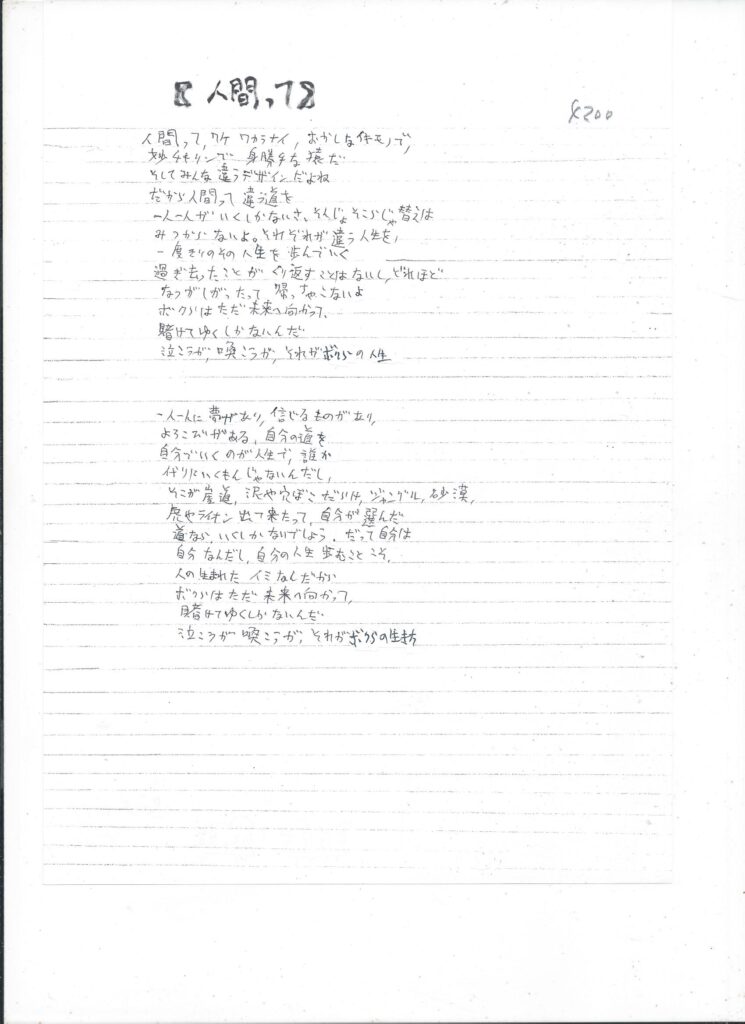 【人間って】
人間って,ワケ ワカラナイ,おかしな生キモノで,
妙チキリンで 身勝手な猿だ
そしてみんな違うデザインだよね
だから人間って 違う道を
一人一人がいくしかないさ、そんじょそこらじゃ替えは
みつからないよ。それぞれが違う人生を,
一度きりのその人生を歩んでいく
過ぎ去ったことがくり返すことはないし,どれほど
なつかしがったって 帰っちゃこないよ
ボクらはただ未来へ向かって、
賭けてゆくしかないんだ
泣こうが,喚こうが,それがボクらの人生
一人一人に夢があり,信じるものがあり,
よろこびがある,自分の道を
自分でいくのが人生で,誰か
代りにいくもんじゃないんだし,
そこが崖道,沢や穴ぼこだらけ,ジャングル,砂漠,
虎やライオン出て来たって,自分が選んだ
道なら,いくしかないでしょう.だって自分は
自分なんだし,自分の人生歩むことこそ,
人の生まれた イミなんだから
ボクらはただ 未来へ向かって,
賭けてゆくしかないんだ
泣こうが 喚こうが,それがボクらの生き方